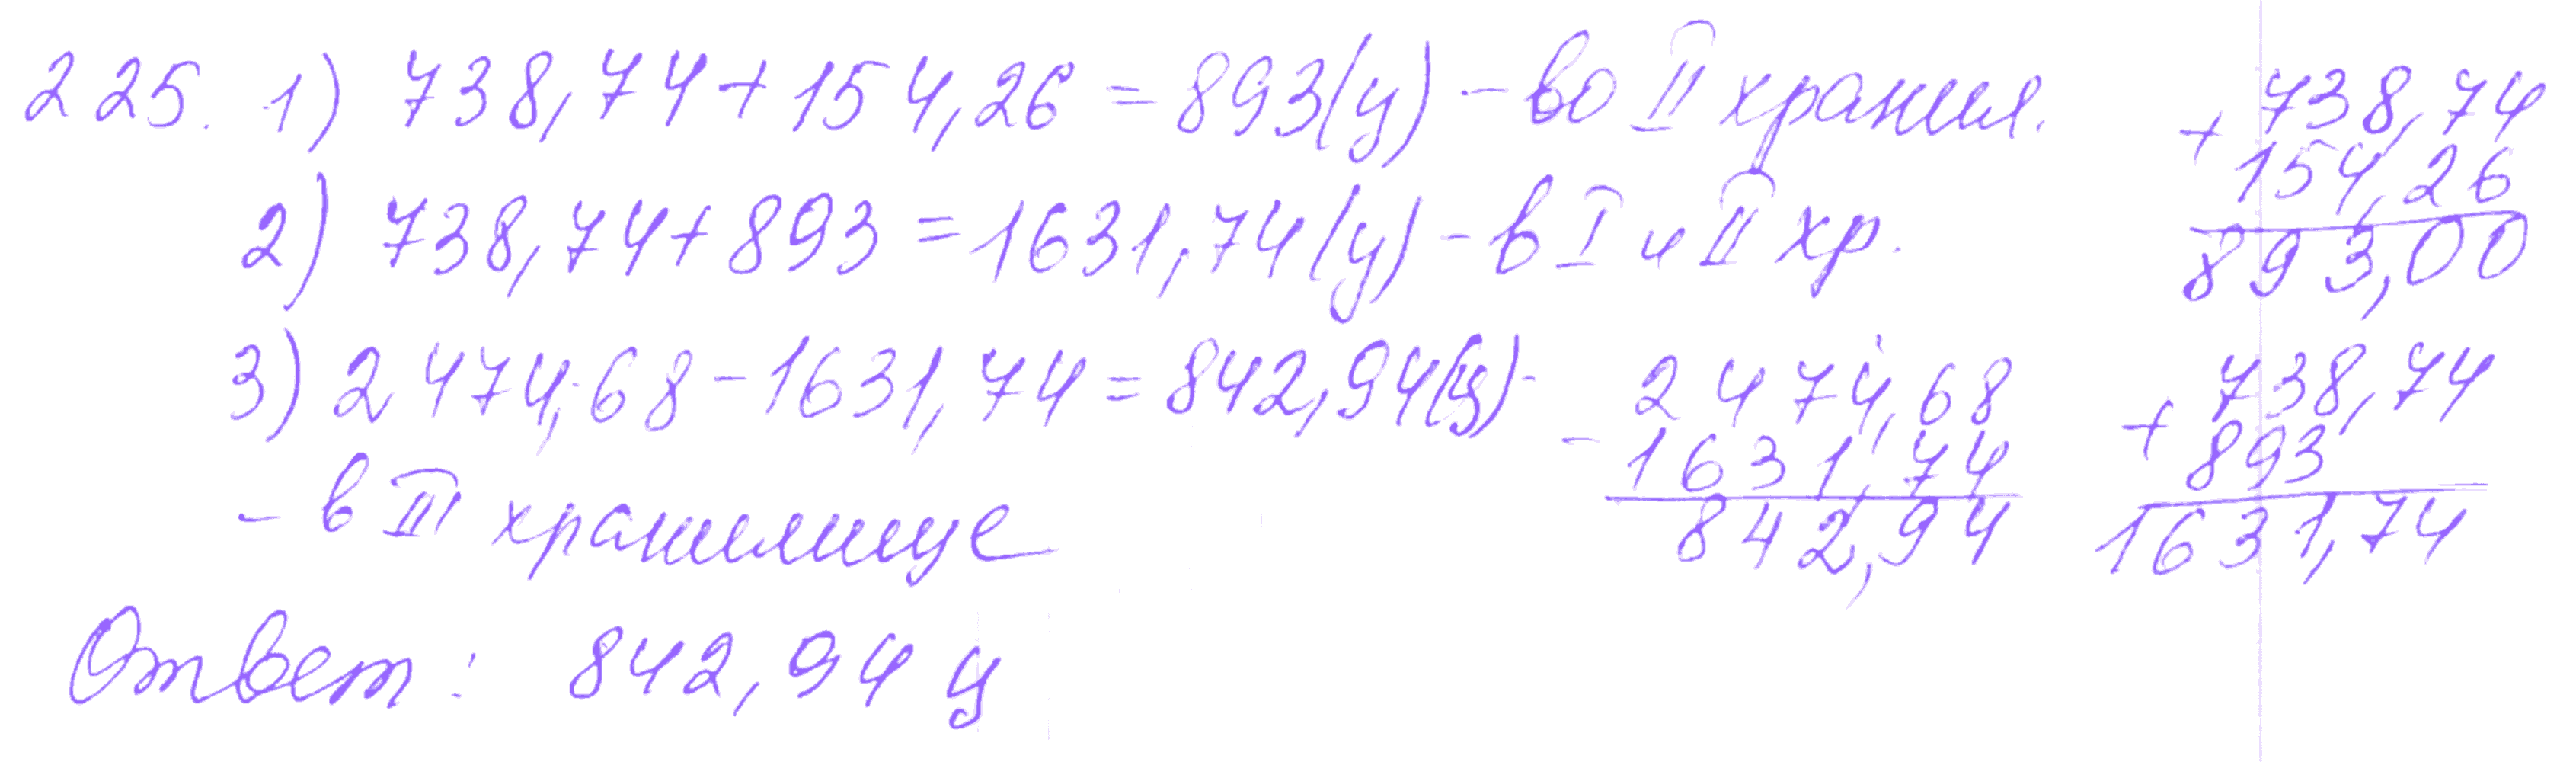 225. 1) 738,74+154,26=893(ц) - во II хранил.
2) 738,74+893=1631,74(ц) - в I и II хр.
3) 2474,68-1631,74=842,94(ц)-
- в III хранилище
Ответ: 842,94 ц
+738,74
154,26
893,00
- 2474,68
1631,74
842,94
+738,74
893
1631,74